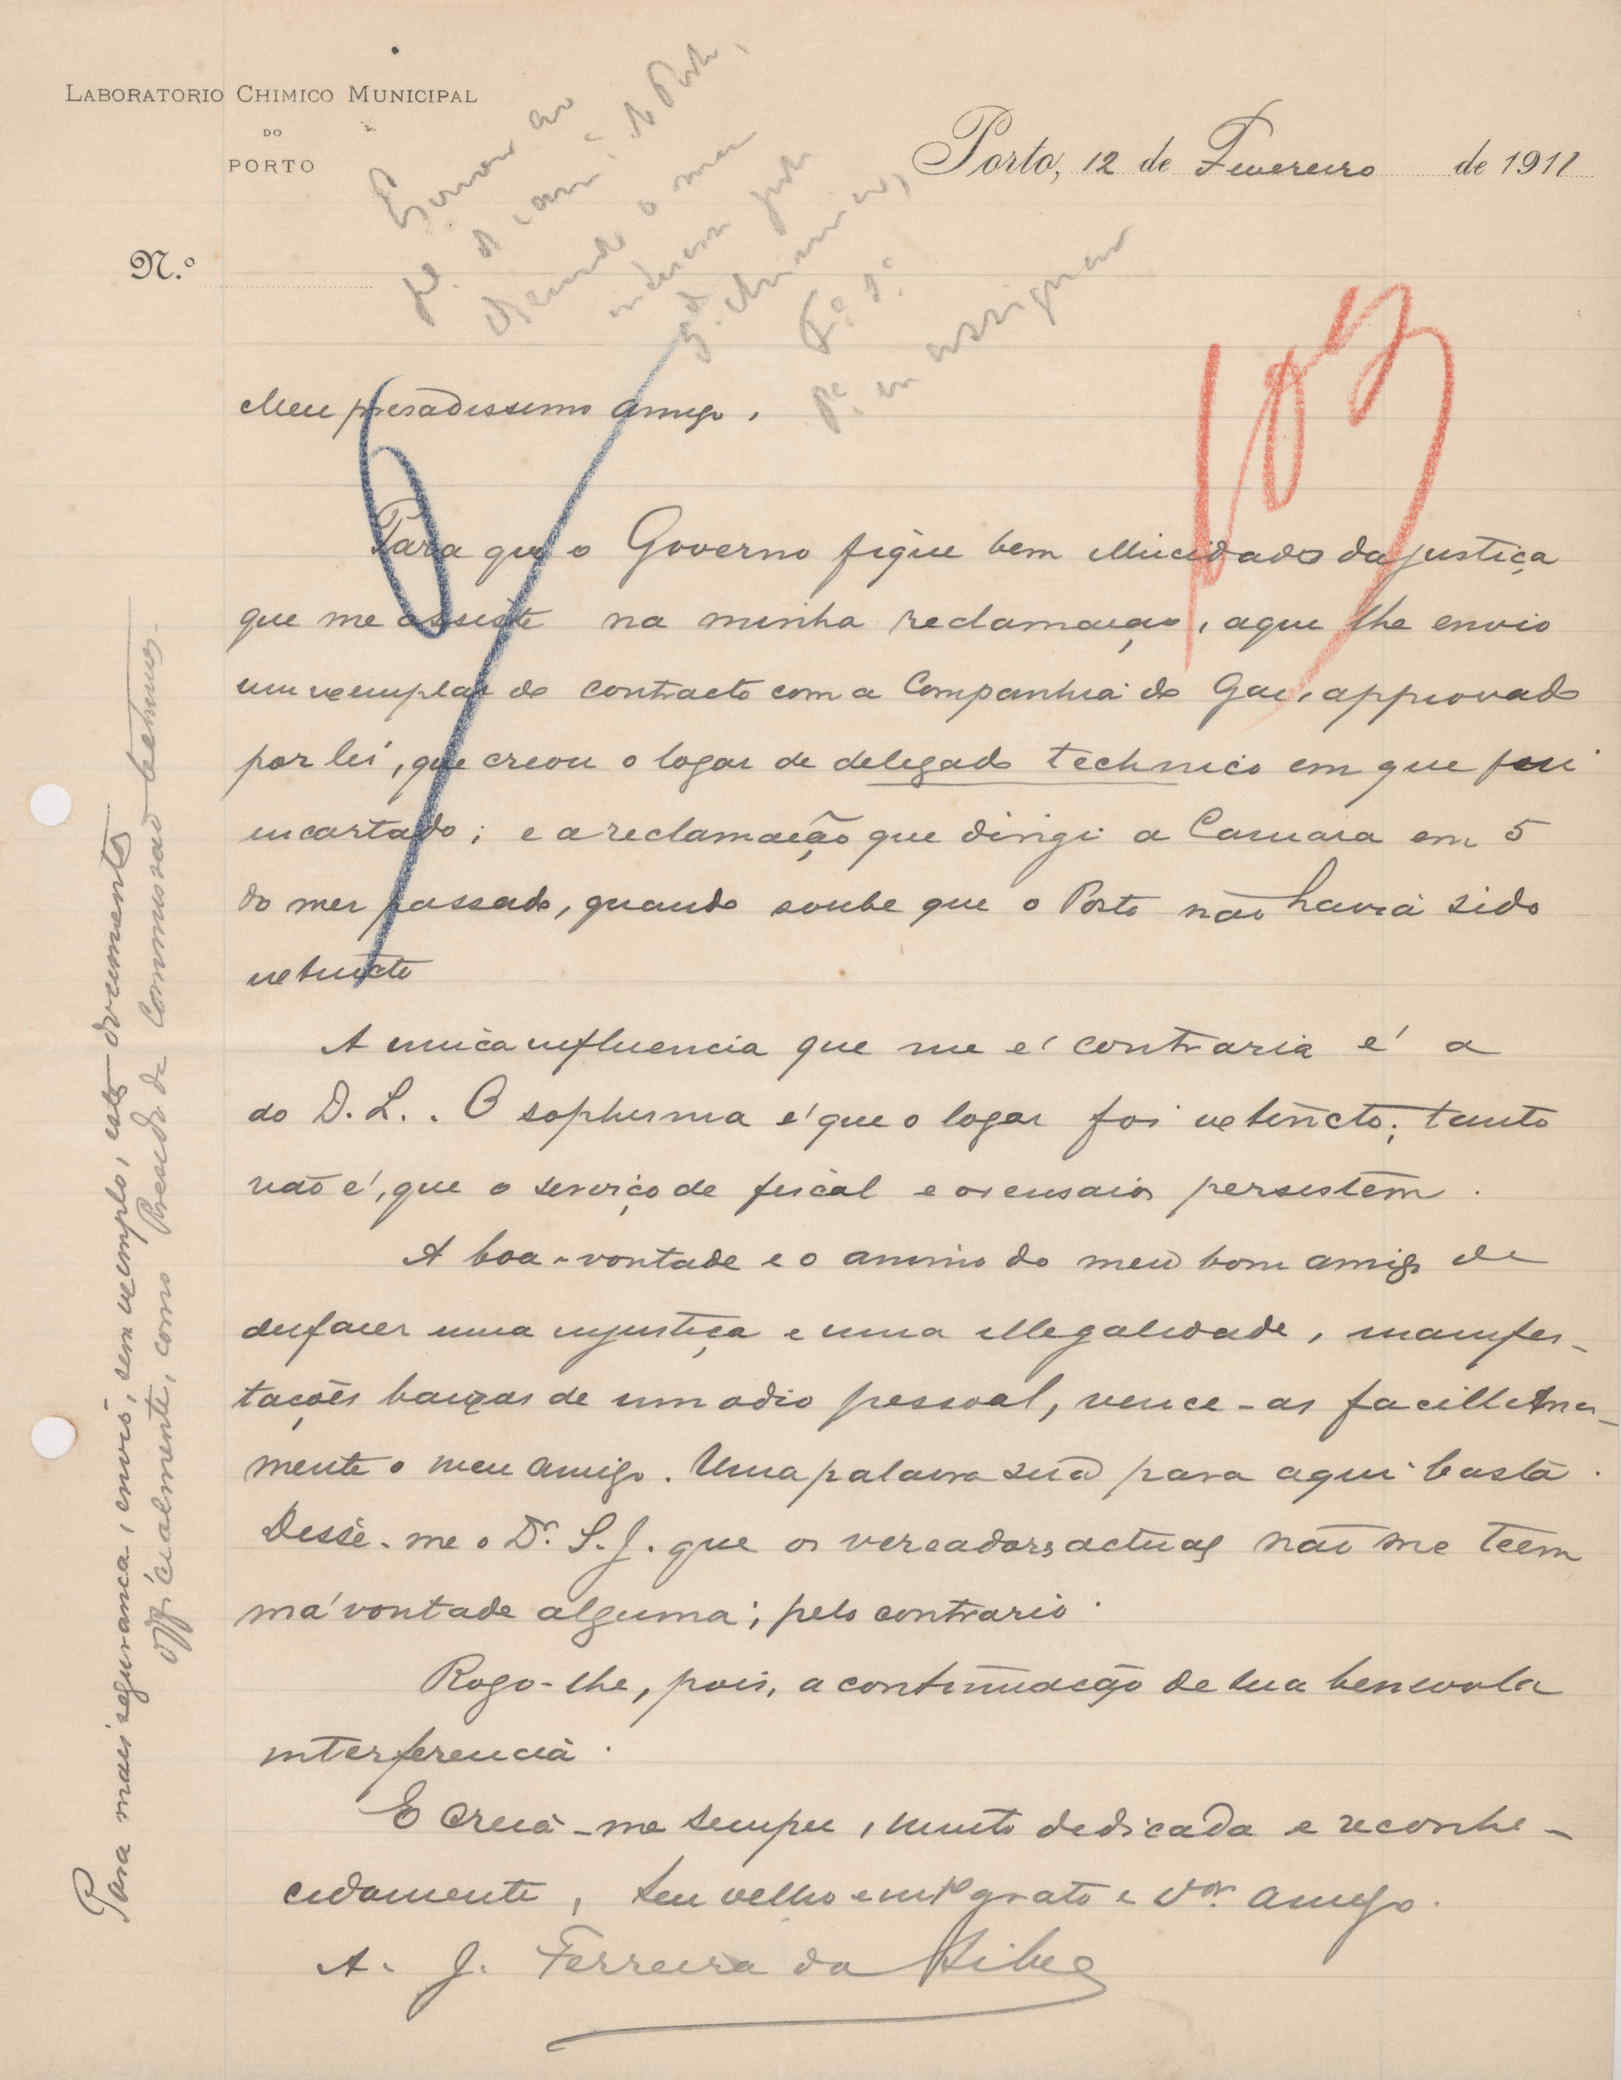 LABORATORIO CHIMICO MUNICIPAL
DO
PORTO
Porto, 12 de Fevereiro de 1911
N.º
Meu presadissimo amigo,
Para que o Governo fique bem ellucidado da justiça
que me assiste na minha reclamação, aqui lhe envio
um exemplar do contracto com a Companhia do Gaz, approvado
por lei, que creou o logar de delegado technico em que fui
encartado; e a reclamação que dirigi a Camara em 5
do mez passado, quando soube que o Posto não havia sido
extincto
A unica influencia que me é contraria é a
do D. L.. O sophisma é que o logar foi extincto; tanto
não é, que o serviço de fiscal e os ensaios persistem.
A boa-vontade e o animo do meu bom amigo de
desfazer uma injustiça e uma illegalidade, manifes-
tações baixas de um odio pessoal, vence-as facillima-
mente o meu amigo. Uma palavra sua para aqui basta.
Disse-me o Dr. S. J. que os vereadores actuaes não me teem
má vontade alguma; pelo contrario.
Rogo-lhe, pois, a continuação de sua benevola
interferencia.
E creia-me sempre, muito dedicada e reconhe-
cidamente, seu velho e mto grato e Vor. amigo.
A. J. Ferreira da Silva
Para mais segurança, envio, sem exemplo, estes documentos
officialmente, como Presidte da Commissão de
107